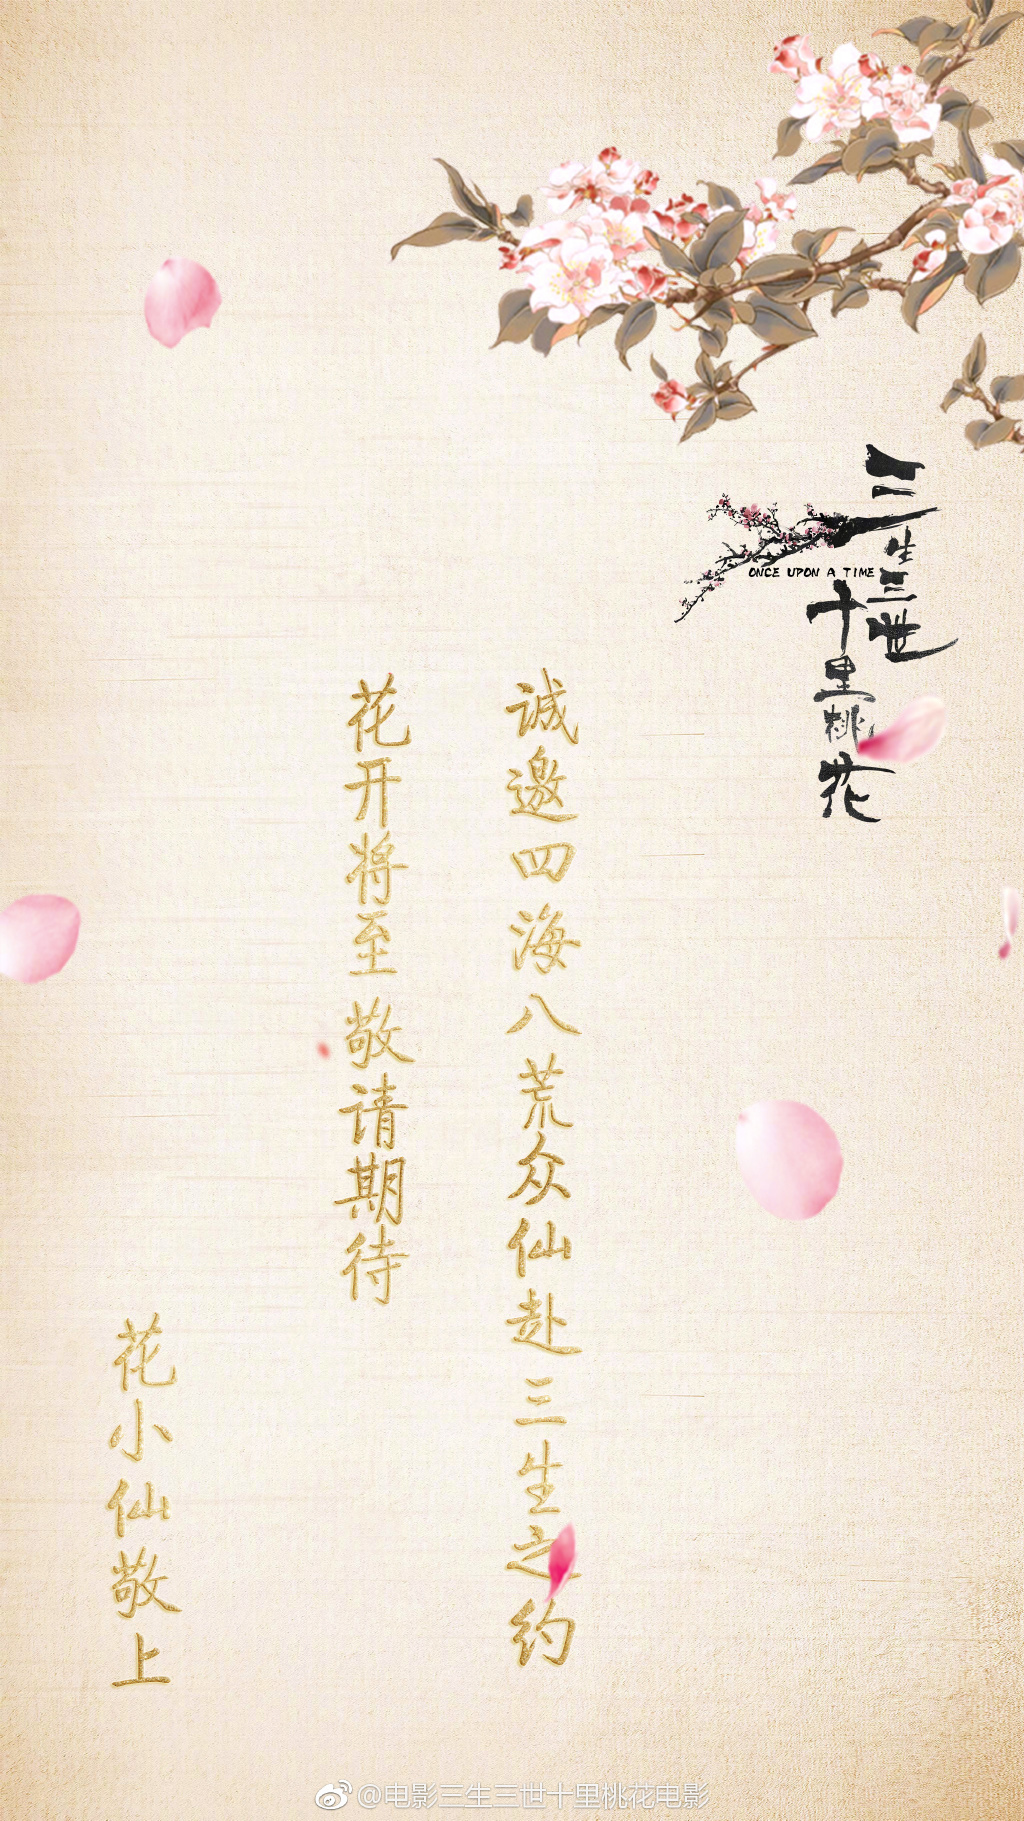 三生三世
十里桃花
ONCE UPON A TIME
诚邀四海八荒众仙赴三生之约
花开将至 敬请期待
花小仙敬上
@电影三生三世十里桃花电影